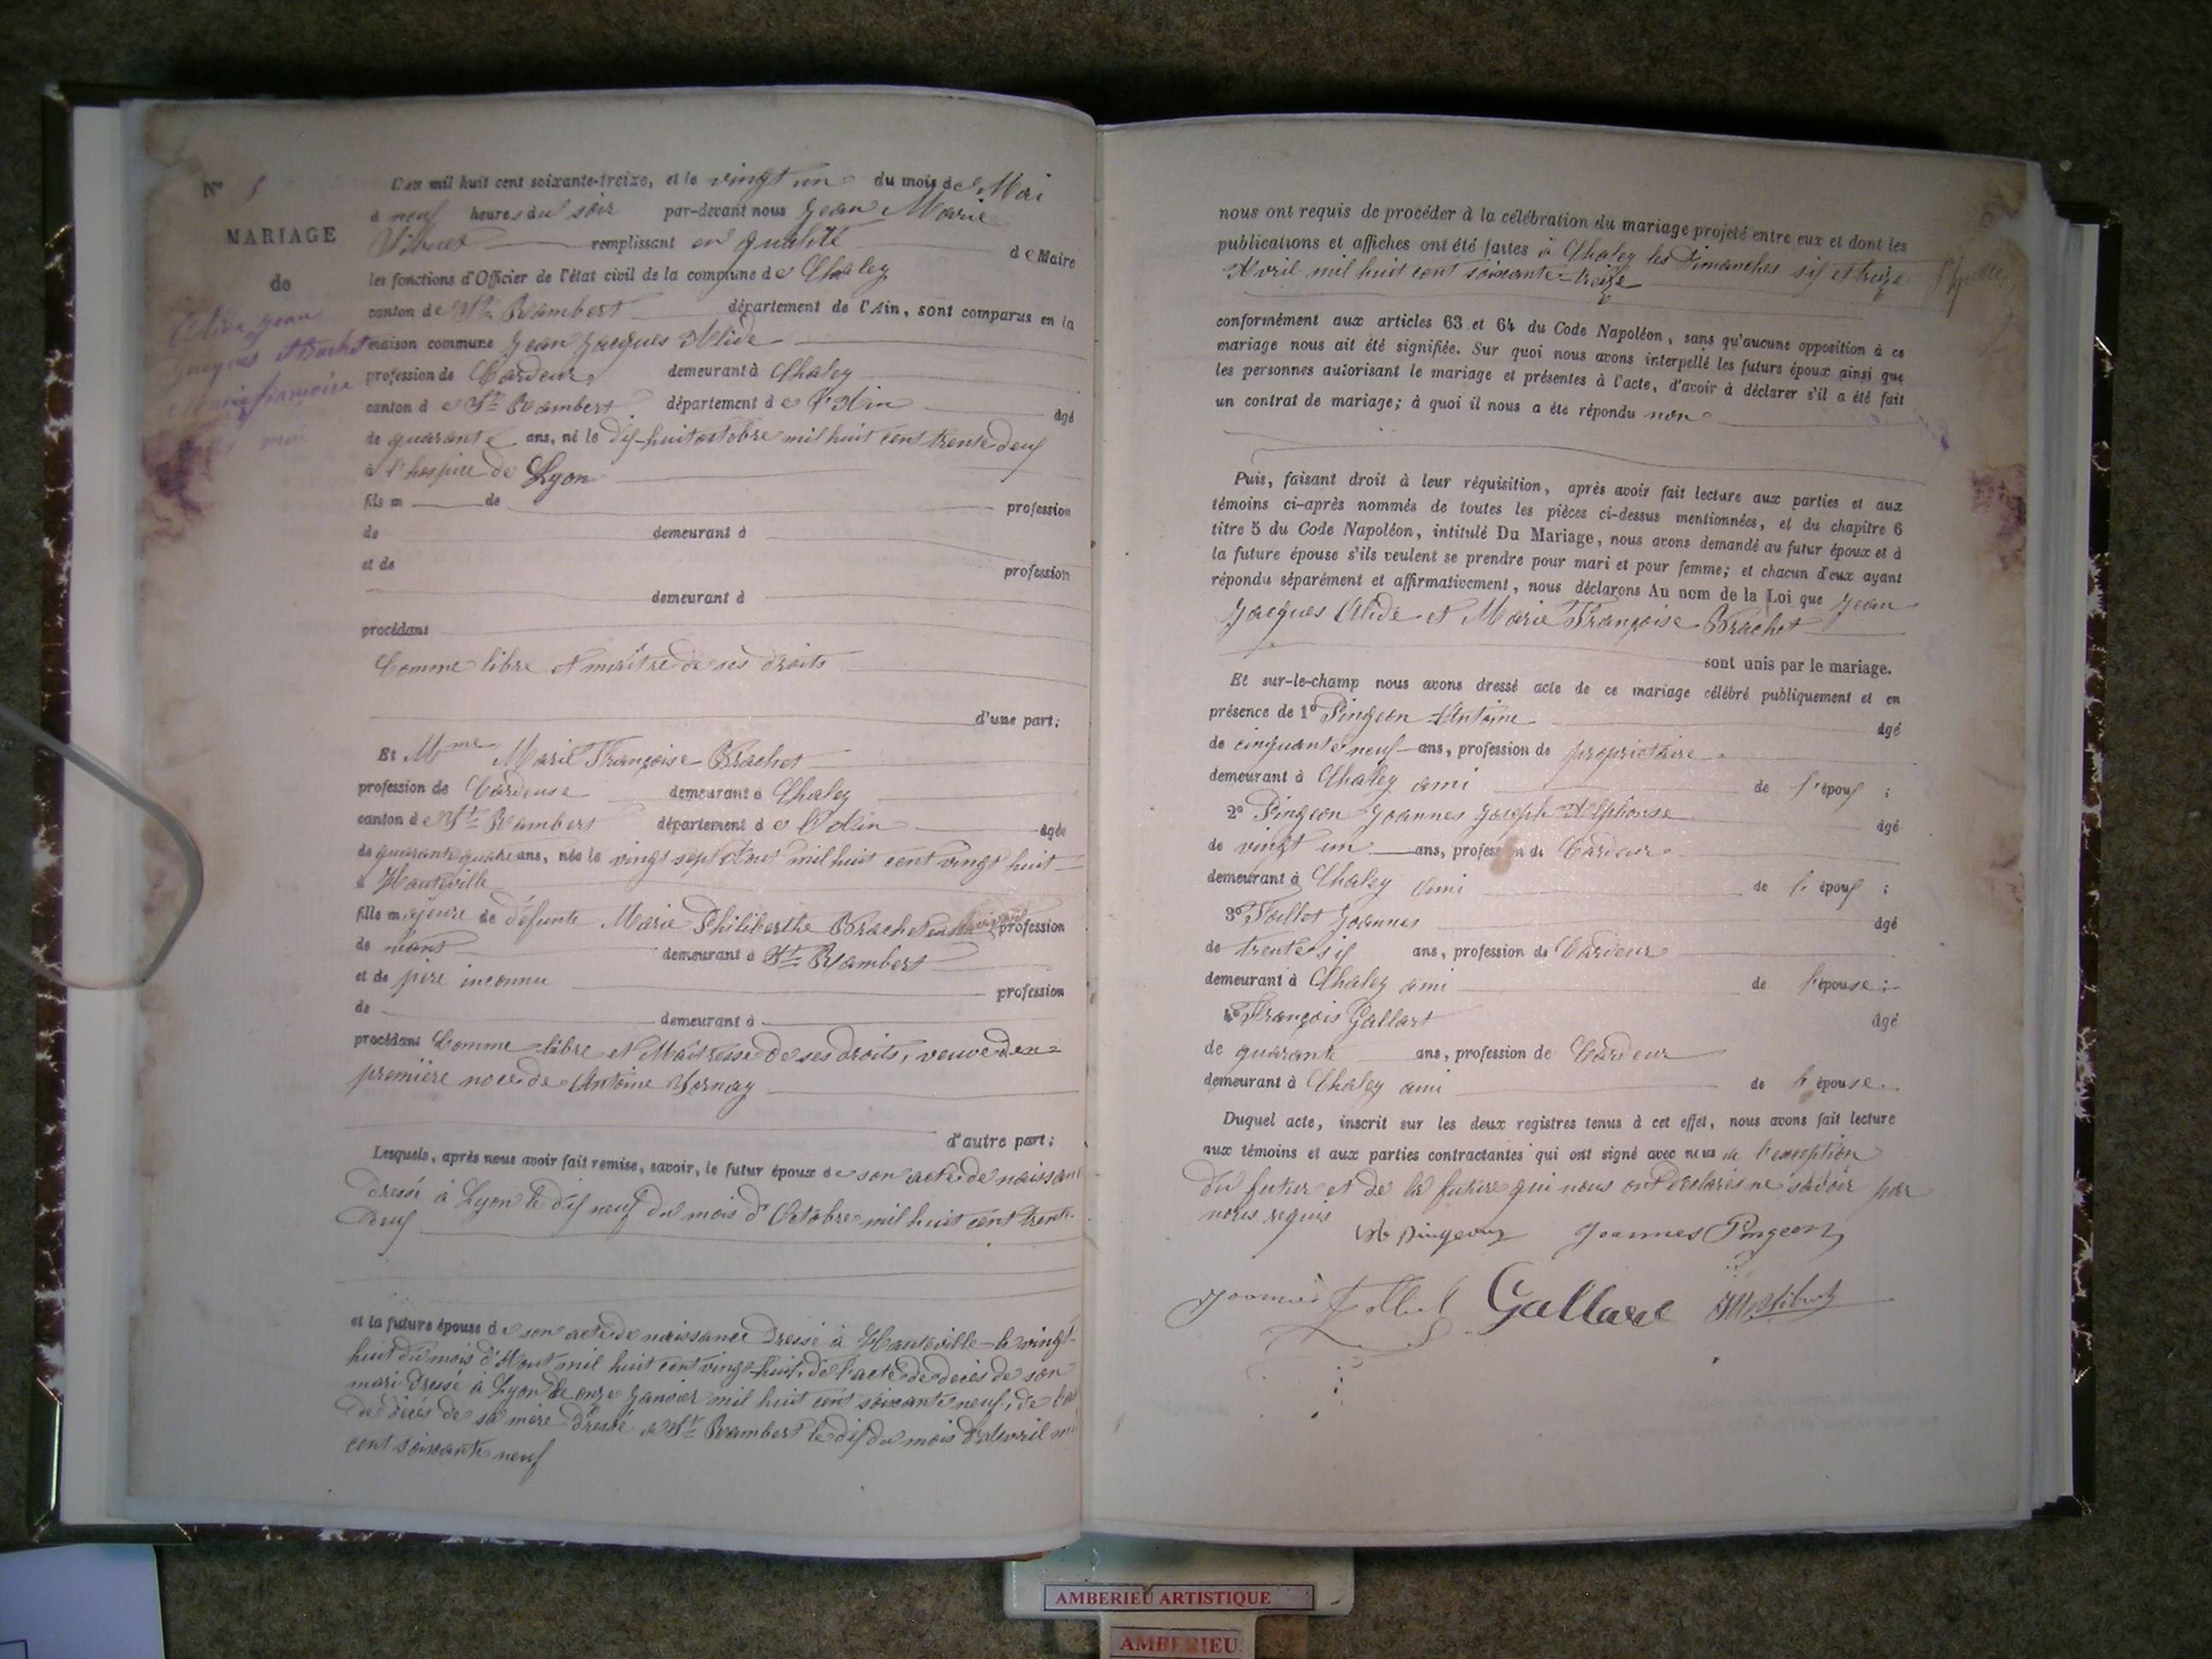 N° 5
MARIAGE
de
Alide Jean
Jacques et Brachet
Marie françoise
L'an mil huit cent soixante-treize, et le vingt un du mois de Mai
à neuf heures du soir par-devant nous Jean Marie
remplissant en qualité de Maire
les fonctions d'Officier de l'état civil de la commune de Chaley
canton de St Rambert département de l'Ain, sont comparus en la
maison commune Jean Jacques Alide
profession de Cardeur demeurant à Chaley
canton de St Rambert département de l'Ain âgé
de quarante ans, né le dix-huit octobre mil huit cent trente deux
à l'hospice de Lyon
fils m de profession
de demeurant à
et de profession
demeurant à
procédant
Comme libre et maître de ses droits
d'une part;
Et Mme Marie Françoise Brachet
profession de Cardeuse demeurant à Chaley
canton de St Rambert département de l'Ain âgée
de quarante quatre ans, née le vingt sept Aout mil huit cent vingt huit
à Hauteville
fille majeure de défunte Marie Philiberthe Brachet profession
de demeurant à St Rambert
et de père inconnu profession
de demeurant à
procédant Comme libre et Maîtresse de ses droits, veuve d'en
première noce de Antoine Vornay
d'autre part;
Lesquels, après nous avoir fait remise, savoir, le futur époux de son acte de naissance
dressé à Lyon le dix neuf du mois d'Octobre mil huit cent trente
deux
et la future épouse de son acte de naissance dressé à Hauteville le vingt
huit du mois d'Aout mil huit cent vingt-huit, de l'acte de décès de son
mari dressé à Lyon le onze Janvier mil huit cent soixante neuf, de
de décès de sa mère dressé à St Rambert le dix du mois d'avril
cent soixante neuf
nous ont requis de procéder à la célébration du mariage projeté entre eux et dont les
publications et affiches ont été faites à Chaley les Dimanches six et treize
Avril mil huit cent soixante-treize
conformément aux articles 63 et 64 du Code Napoléon, sans qu'aucune opposition à ce
mariage nous ait été signifiée. Sur quoi nous avons interpellé les futurs époux ainsi que
les personnes autorisant le mariage et présentes à l'acte, d'avoir à déclarer s'il a été fait
un contrat de mariage; à quoi il nous a été répondu non
Puis, faisant droit à leur réquisition, après avoir fait lecture aux parties et aux
témoins ci-après nommés de toutes les pièces ci-dessus mentionnées, et du chapitre 6
titre 5 du Code Napoléon, intitulé Du Mariage, nous avons demandé au futur époux et à
la future épouse s'ils veulent se prendre pour mari et pour femme; et chacun d'eux ayant
répondu séparément et affirmativement, nous déclarons Au nom de la Loi que Jean
Jacques Alide et Marie Françoise Brachet
sont unis par le mariage.
Et sur-le-champ nous avons dressé acte de ce mariage célébré publiquement et en
présence de 1° Pingeon Antoine âgé
de cinquante neuf ans, profession de propriétaire
demeurant à Chaley ami de l'époux ;
2° Pingeon Joannes Joseph Alphonse âgé
de vingt un ans, profession de Cardeur
demeurant à Chaley ami de l'époux ;
3° Joannes âgé
de trente six ans, profession de Cardeur
demeurant à Chaley ami de l'épouse ;
4° François Gallart âgé
de quarante ans, profession de Cardeur
demeurant à Chaley ami de l'épouse.
Duquel acte, inscrit sur les deux registres tenus à cet effet, nous avons fait lecture
aux témoins et aux parties contractantes qui ont signé avec nous à l'exception
du futur et de la future qui nous ont déclarés ne savoir par
nous requis
Pingeon Joannes Pingeon
Joannes Gallart
AMBERIEU ARTISTIQUE
AMBERIEU